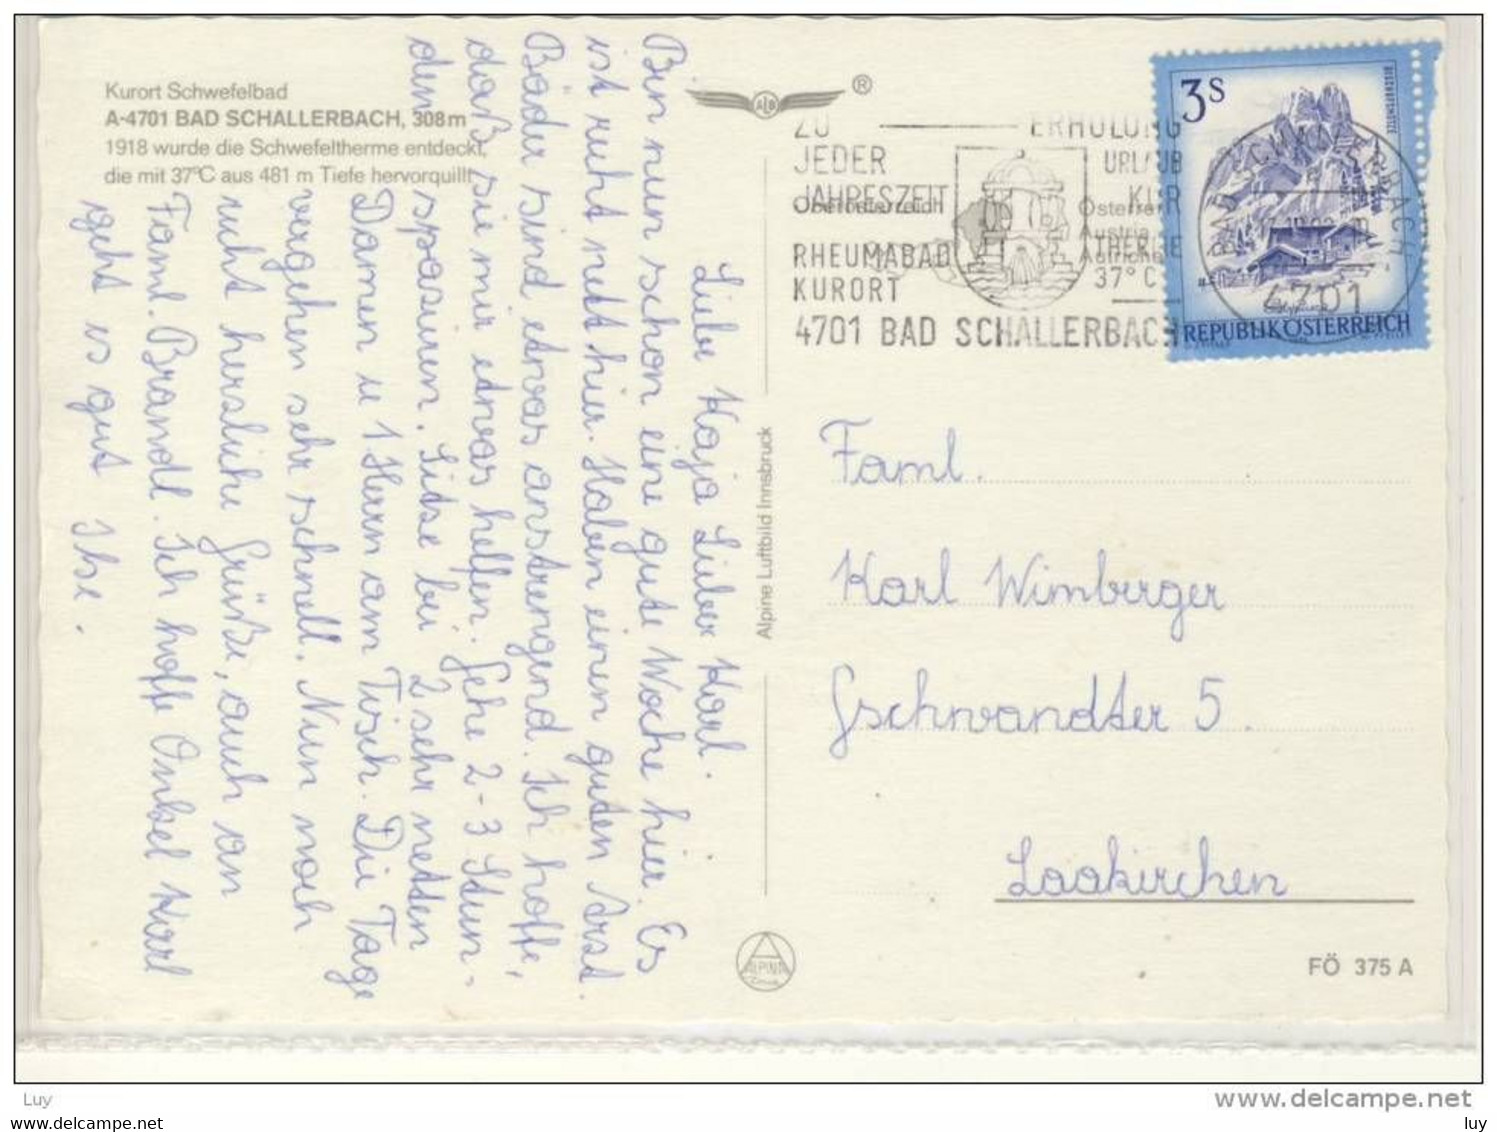 Kurort Schwefelbad
A-4701 BAD SCHALLERBACH, 308m
1918 wurde die Schwefeltherme entdeckt,
die mit 37°C aus 481 m Tiefe hervorquillt
Liebe Kaja Lieber Karl.
Bin nun schon eine gute Woche hier. Es
ist recht nett hier. Haben einen guten Arzt.
Bäder sind etwas anstrengend. Ich hoffe,
daß sie mir etwas helfen. Gehe 2-3 Stun-
den spazieren. Sitze bei 2 sehr netten
Damen u 1 Herrn am Tisch. Die Tage
vergehen sehr schnell. Nun noch
recht herzliche Grüße, auch an
Faml. Brandl. Ich hoffe Onkel Karl
geht es gut Ihr.
®
ZU ERHOLUNG
JEDER URLAUB
JAHRESZEIT KUR
Oberösterreich
Austria
RHEUMABAD THERME
KURORT 37°C
4701 BAD SCHALLERBACH
3S
BISCHOFSMÜTZE
REPUBLIK ÖSTERREICH
BAD SCHALLERBACH
4701
Alpine Luftbild Innsbruck
Faml.
Karl Wimberger
Gschwandter 5.
Laakirchen
ALPINA
FÖ 375 A
Luy
www.delcampe.net
luy www.delcampe.net
luy